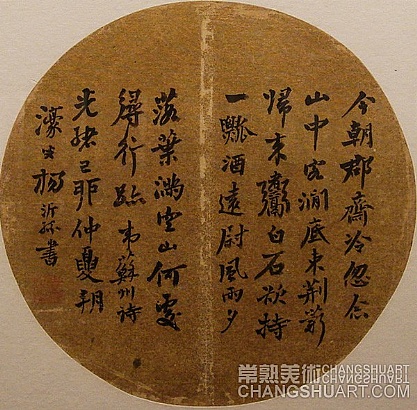 今朝郡齋冷忽念
山中客澗底束荊薪
歸來白石欲持
一瓢酒遠尉風雨夕
落葉滿空山何處
尋行跡 韋蘇州詩
光緒己卯仲夏朔
濠叟楊沂孫書
常熟美術CHANGSHUART
CHANGSHUART